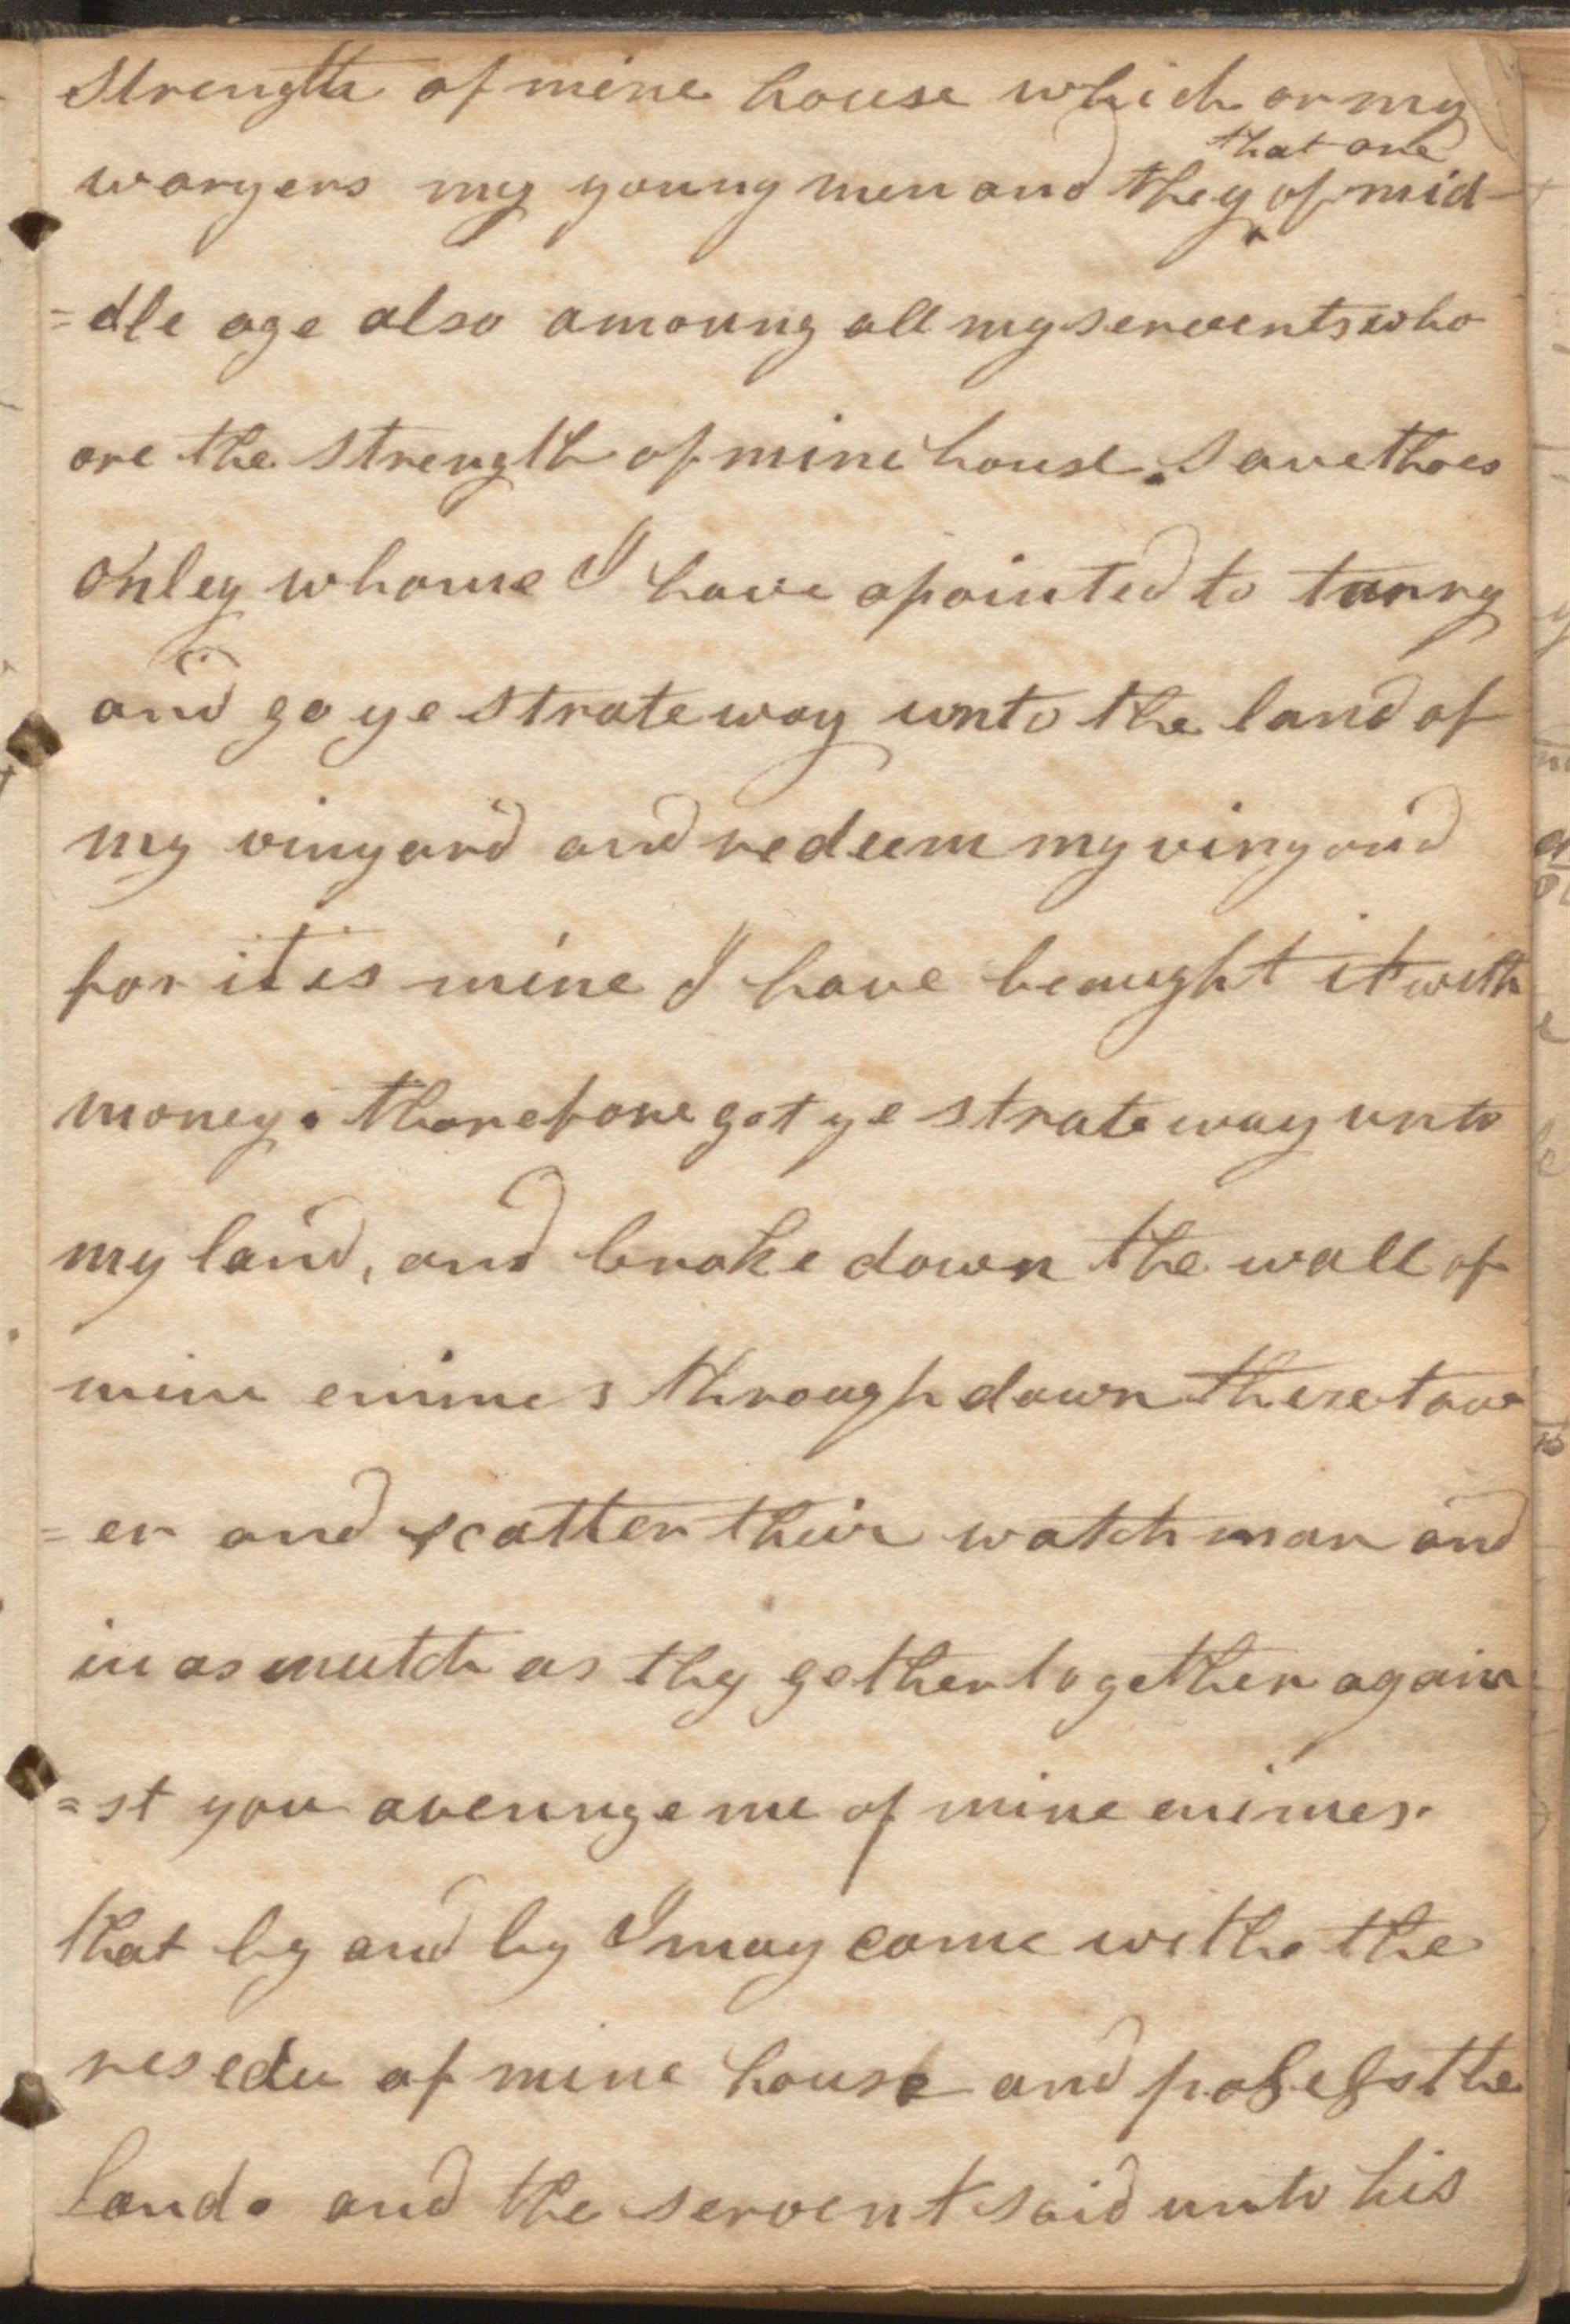 strength of mine house which ar my
waryers my young men and they that are of mid-
=dle age also amoung all my servents who
are the strength of mine house. save thoes
only whome I have apointed to tarry
and go ye strateway unto the land of
my vinyard and redeem my vinyard
for it is mine I have beaught it with
money. tharefore get ye strateway unto
my land, and brake down the wall of
mine enimes through down there tow
=er and scatter their watchman and
inasmutch as thy gether together again
=st you avenuge me of mine enimes.
that by and by I may come with the
resedu of mine house and possess the
land. and the servent said unto his